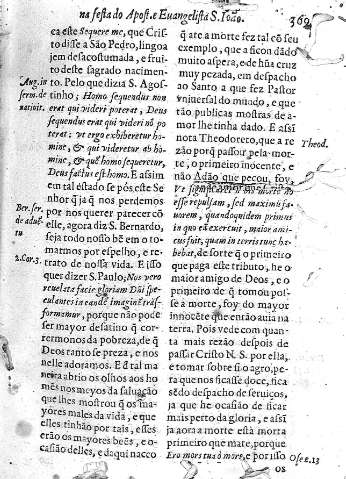 na festa do Apost. e Euangelista S. Ioão. 369
ca este Sequere me, que Cris-
to disse a São Pedro, lingoa
jem desacostumada, e frui-
to deste sagrado nacimen-
to. Pelo que dizia S. Agos-
tinho; Homo sequendus non
erat qui videri poterat; Deus
sequendus erat qui videri nõ po
terat: vt ergo exhiberetur ho-
mini, & qui videretur ab ho-
mine, & quẽ homo sequeretur,
Deus factus est homo. E assim
em tal estado se pós, este Se-
nhor q̃ já q̃ nos perdemos
por nos querer parecer cõ
elle, agora diz S. Bernardo,
seja todo nosso bẽ em o to-
marmos por espelho, e re-
trato de nossa vida. E isso
quer dizer S. Paulo, Nos vero
reuelata facie gloriam Dñi spe-
culantes in eandẽ imaginẽ trãs-
formamur, porque não póde
ser mayor desatino q̃ cor-
rermonos da pobreza, de q̃
Deos tanto se preza, e nos
nelle adoramos. E d tal ma
neira abrio os olhos aos ho
mẽs nos meyos da saluação
que lhes mostrou q̃ os ma-
yores males da vida, e que
elles tinhão por tais, esses
erão os mayores bẽs, e o-
casião delles, e daqui nacco
Aug. in
serm. de
natiuit.
Ber. ser.
de aduẽ
tu
2. Cor. 3.
q̃ ate a morte fez tal cõ seu
exemplo, que a ficon dãdo
muito aspera, e de hũa cruz
muy pezada, em despacho
ao Santo a que fez Pastor
vniuersal do mundo, e que
tão publicas mostras de a-
mor lhe tinha dado. E assi
nota Theodoreto, que a re
zão porq̃ passou pela mor-
te, o primeiro inocente, e
não Adão que pecou, foy,
esse repulsam, sed maximi fa-
uorem, quandoquidem primus
in quo eã exercuit, maior ami-
cus fuit, quam in terris tunc ha-
bebat, de sorte q̃ o primeiro
que paga este tributo, he o
maior amigo de Deos, e o
primeiro de q̃ tomou pos-
se a morte, foy do mayor
innocẽte que então auia na
terra. Pois vede com quan-
ta mais rezão despois de
passar Cristo N. S. por ella,
e tomar sobre si o agro, pe-
ra que nos ficasse doce, fica
sẽdo despacho de seruiços,
ja que he ocasião de ficar
mais perto da gloria, e assi
ja agora a morte está morta
primeiro que mate, porque
Ero mors tua ò mors, e por isso
os
Theod.
Ose e. 13